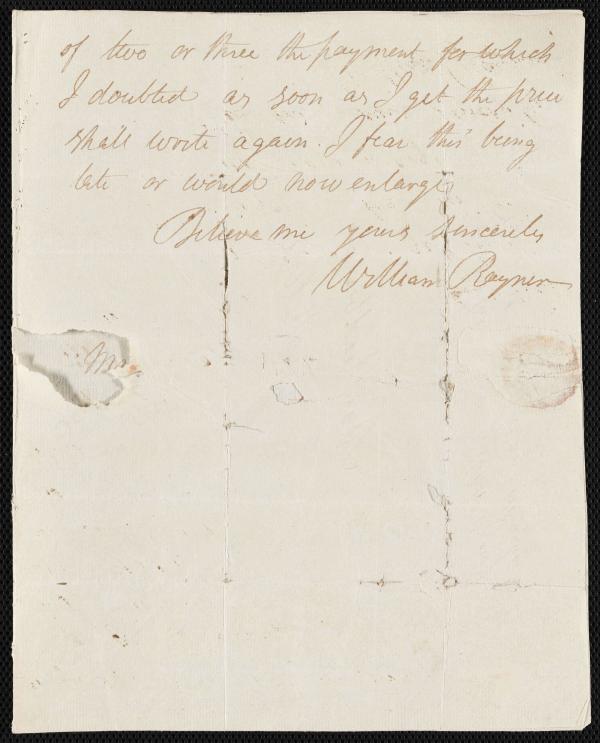 of two or three the payment for which
I doubted as soon as I get the price
shall write again. I fear this being
late or would now enlarge
Believe me yours Sincerely
William Rayner
Mr